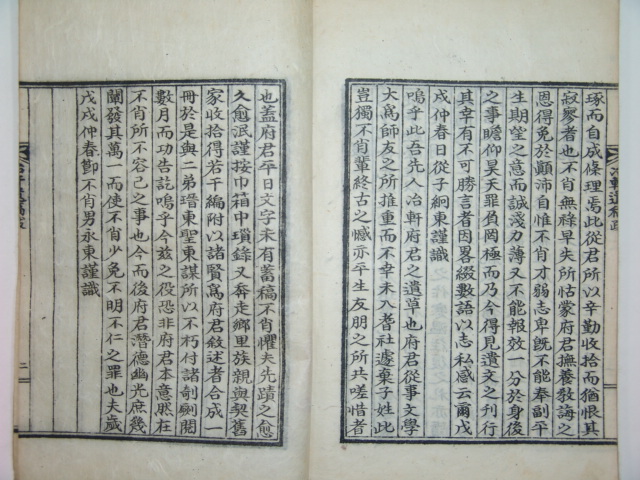 琢而自成條理焉此從君所以辛勤收拾而猶恨其
寂寥者也不肖無祿早失所怙蒙府君撫養敎誨之
恩得免於顚沛自惟不肖才弱志卑旣不能奉副平
生期望之意而誠淺力薄又不能報效一分於身後
之事瞻仰昊天罪負罔極而乃今得見遺文之刊行
其幸有不可勝言者因畧綴數語以志私感云爾戊
戌仲春日從子絅東謹識
嗚乎此吾先人冶軒府君之遺草也府君從事文學
大爲師友之所推重而不幸未入耆社遽棄子姓此
豈獨不肖輩終古之憾亦平生友朋之所共嗟惜者
也蓋府君平日文字未有蓄稿不肖懼夫先蹟之愈
久愈泯謹按巾箱中瑣錄又奔走鄕里族親與契舊
家收拾得若干編附以諸賢爲府君敘述者合成一
冊於是與二弟瑨東聖東謀所以不朽付諸剞劂閱
數月而功告訖嗚乎今玆之役恐非府君本意然在
不肖所不容已之事也今而後府君潛德幽光庶幾
闡發其萬一而使不肖少免不明不仁之罪也夫歲
戊戌仲春節不肖男永東謹識
冶軒遺稿跋
二